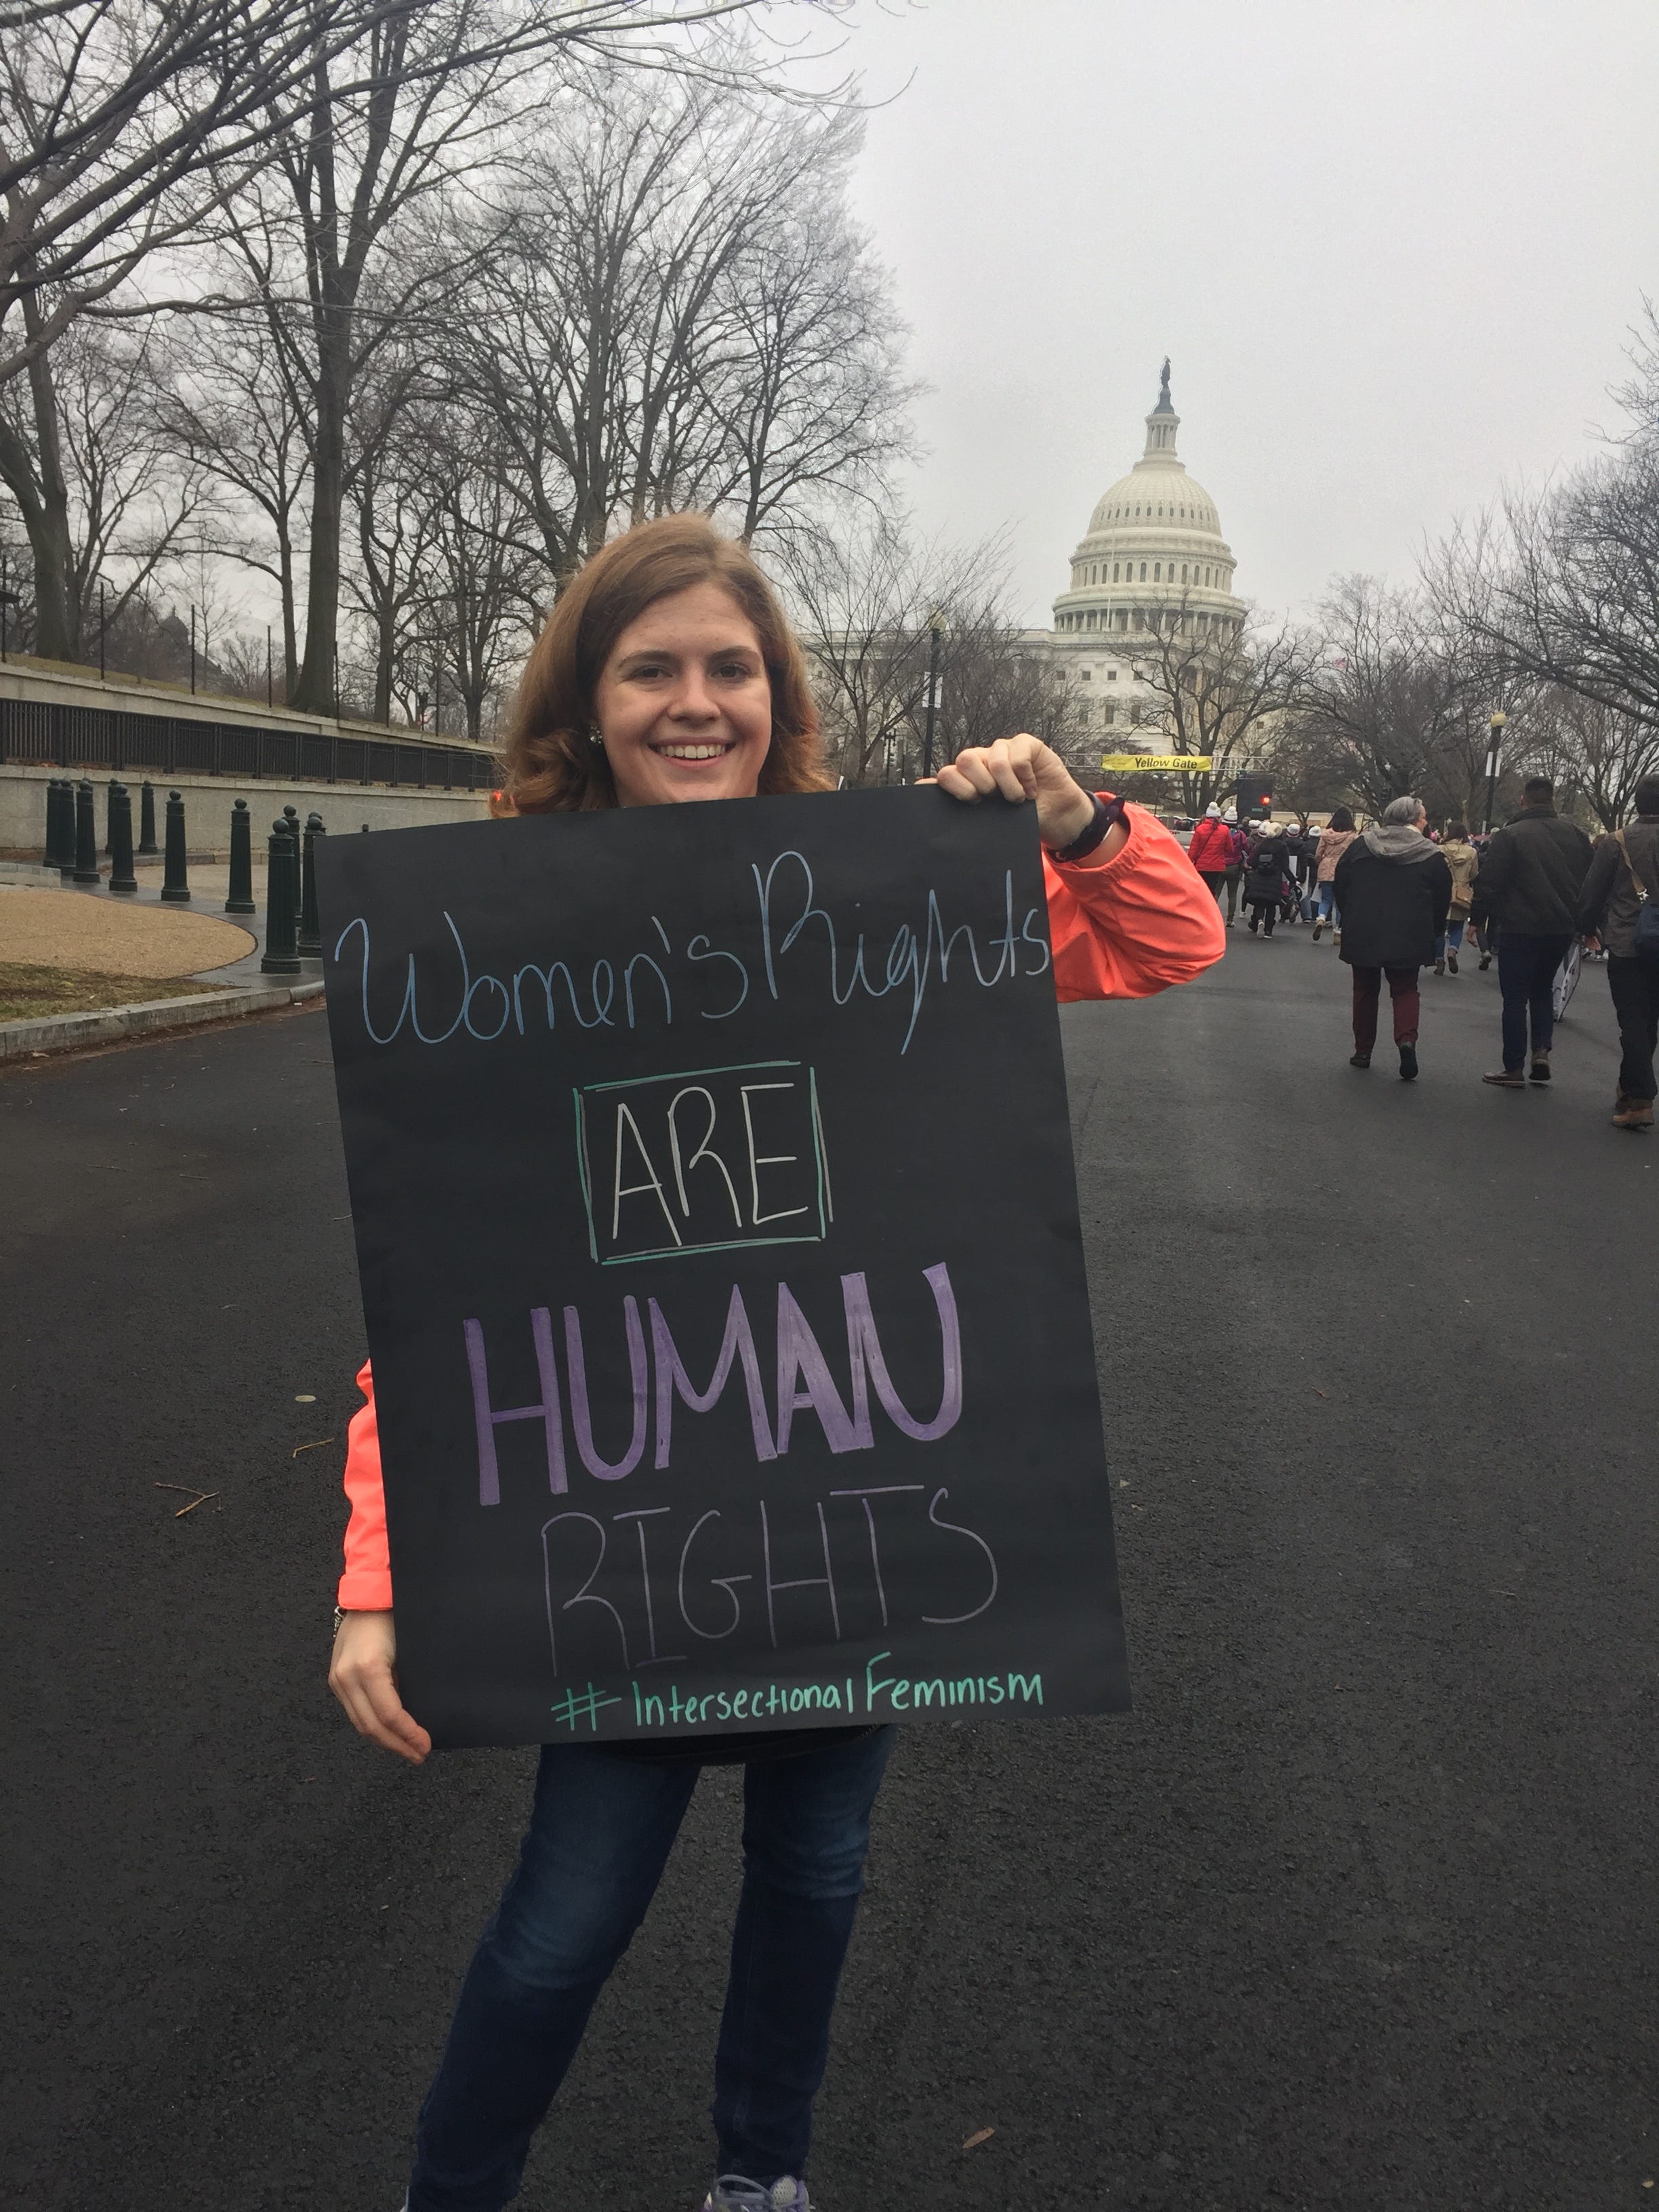 Yellow Gate
Women's Rights
ARE
HUMAN
RIGHTS
#IntersectionalFeminism